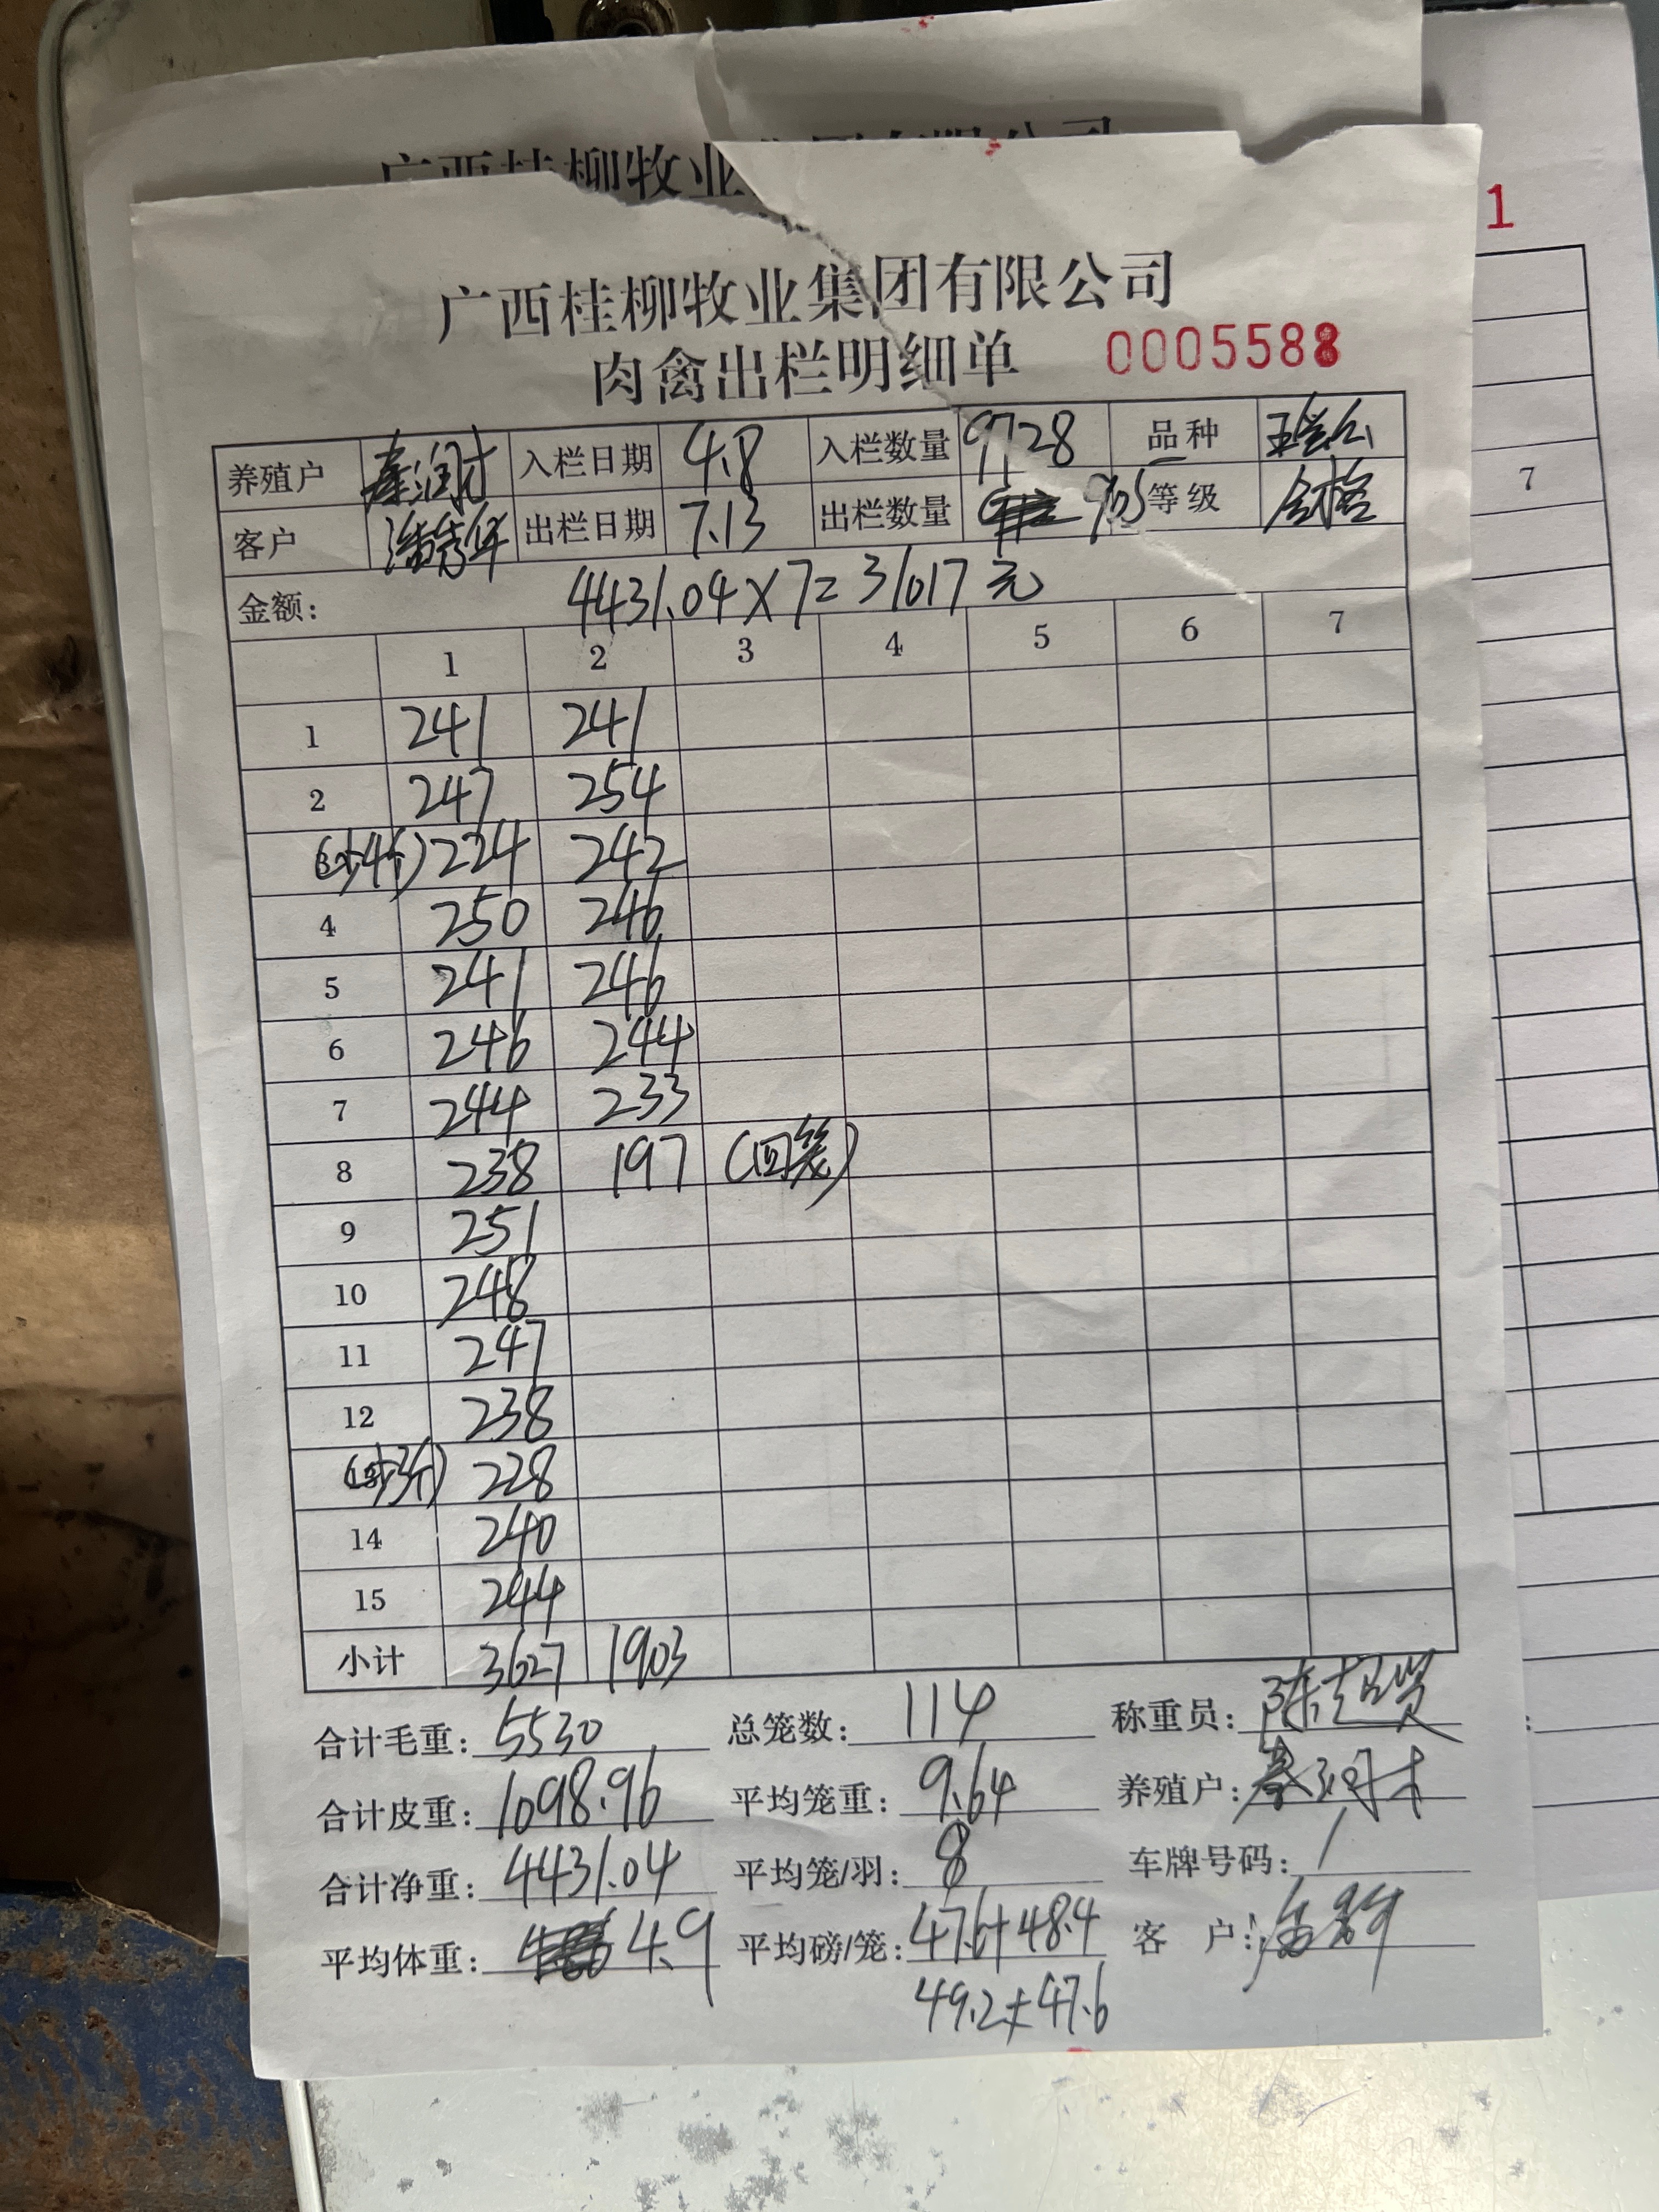 广西桂柳牧业
1
7
广西桂柳牧业集团有限公司
肉禽出栏明细单 0005588
养殖户 秦润才 入栏日期 4.8 入栏数量 9728 品种
客户 潘秀华 出栏日期 7.13 出栏数量 905 等级 合格
金额: 4431.04×7=31017元
1 2 3 4 5 6 7
1 241 241
2 247 254
224 242
4 250 246
5 241 246
6 246 244
7 244 233
8 238 197 (四笼)
9 251
10 248
11 247
12 238
228
14 240
15 244
小计 3627 1903
合计毛重: 5530 总笼数: 114 称重员: 陈超贤
合计皮重: 1098.96 平均笼重: 9.64 养殖户: 秦润才
合计净重: 4431.04 平均笼/羽: 8 车牌号码: /
平均体重: 4.9 平均磅/笼: 47.6+48.4 客 户:
49.2+47.6